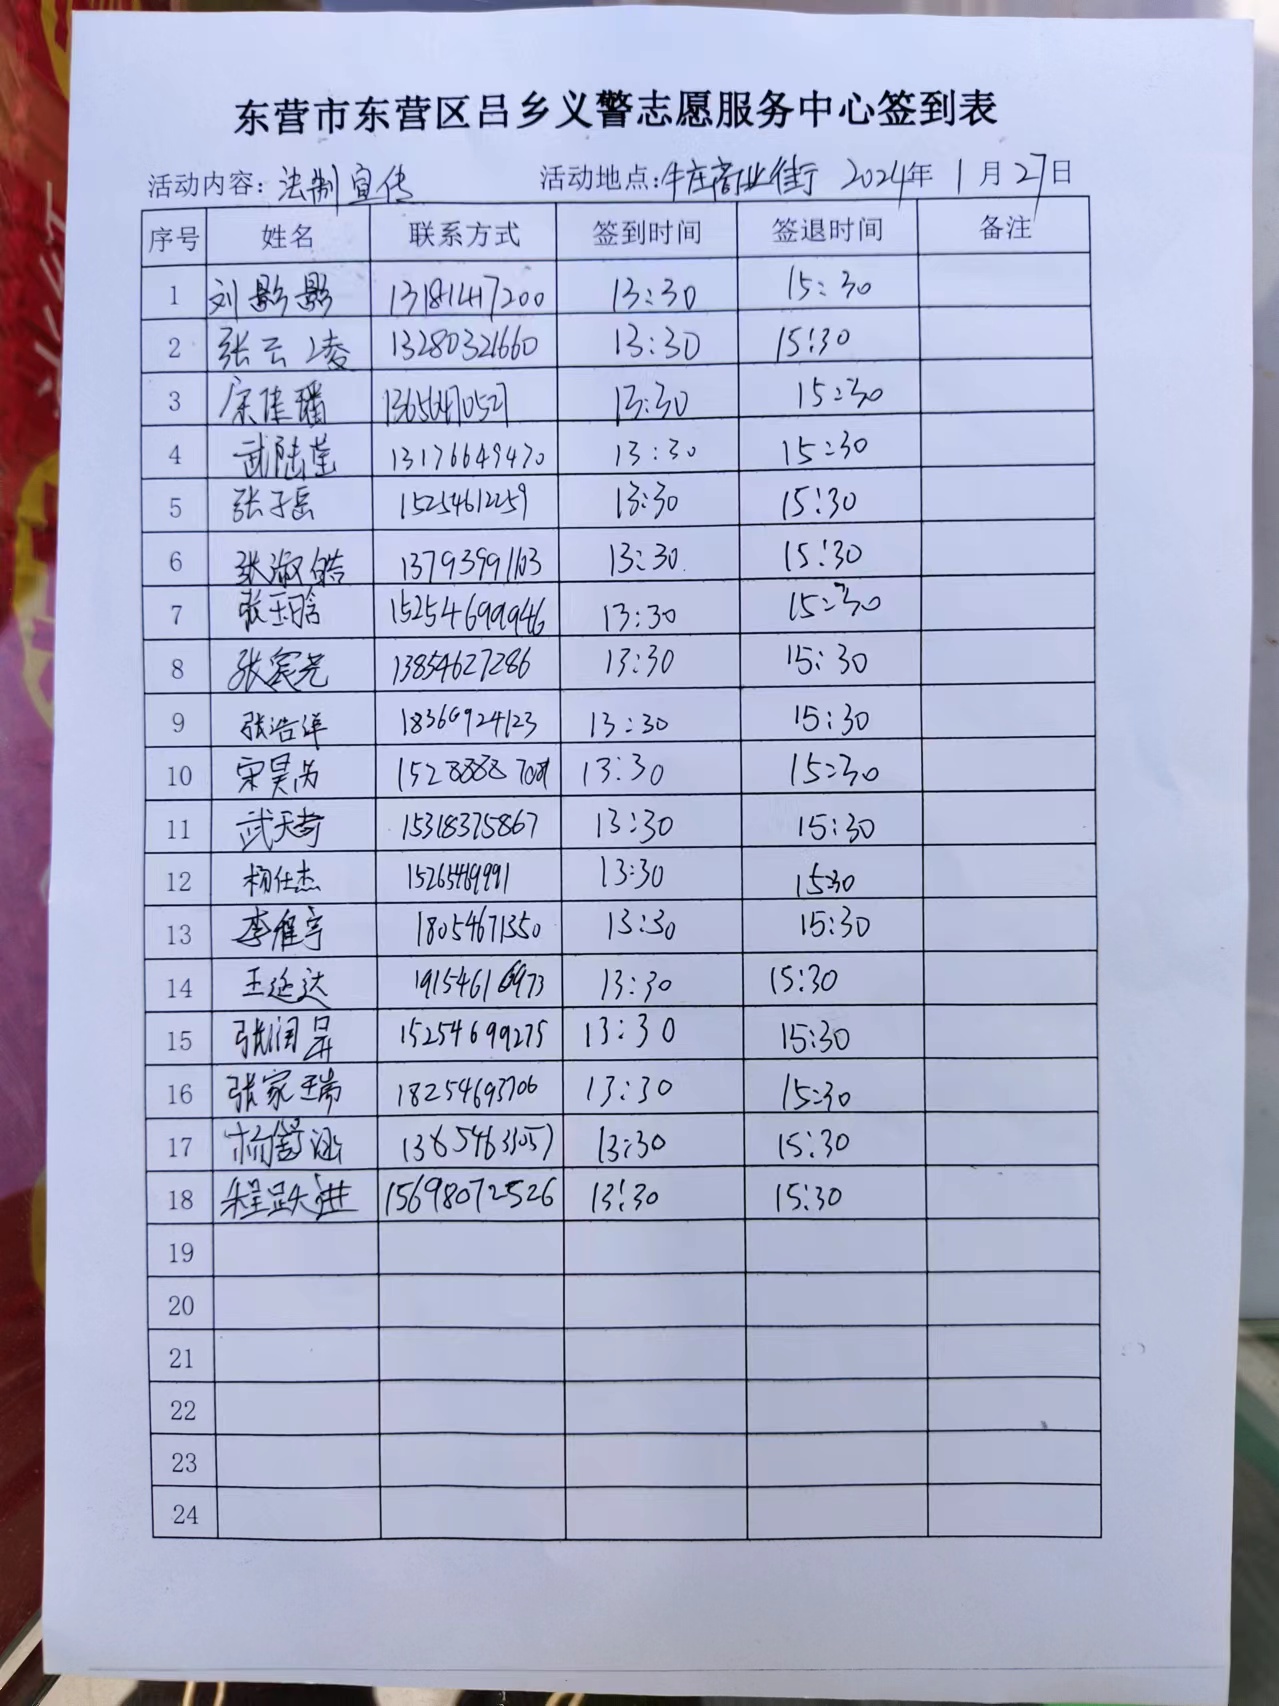 东营市东营区吕乡义警志愿服务中心签到表
活动内容：法制宣传 活动地点：牛庄商业街 2024年 1月27日
序号 姓名 联系方式 签到时间 签退时间 备注
1 刘影影 13181447200 13:30 15:30
2 张云凌 13280321660 13:30 15:30
3 宋佳璠 13656470527 13:30 15:30
4 武陆莹 13176649470 13:30 15:30
5 张子岳 15254612259 13:30 15:30
6 张淑皓 13793991103 13:30 15:30
7 张玉晗 15254699946 13:30 15:30
8 张宾尧 13854627286 13:30 15:30
9 张浩洋 18366924123 13:30 15:30
10 宋昊芮 13:30 15:30
11 武天奇 15318375867 13:30 15:30
12 杨仕杰 13:30 15:30
13 李雅宁 18054671350 13:30 15:30
14 王延达 13:30 15:30
15 张润昇 15254699275 13:30 15:30
16 张家瑞 18254693706 13:30 15:30
17 杨馥涵 13:30 15:30
18 程跃进 15698072526 13:30 15:30
19
20
21
22
23
24